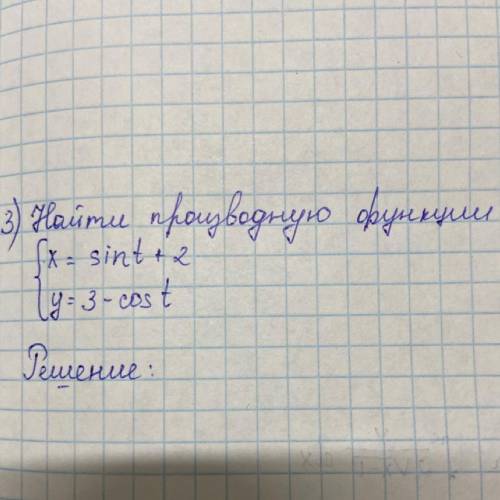 3) Найти производную функции
x = sint + 2
y = 3 - cos t
Решение: